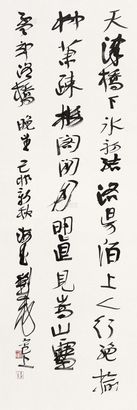 天津橋下冰初結洛陽陌上人行絕榆
柳蕭疏樓閣閑月明直見嵩山雪
孟郊洛橋晚望己卯新秋